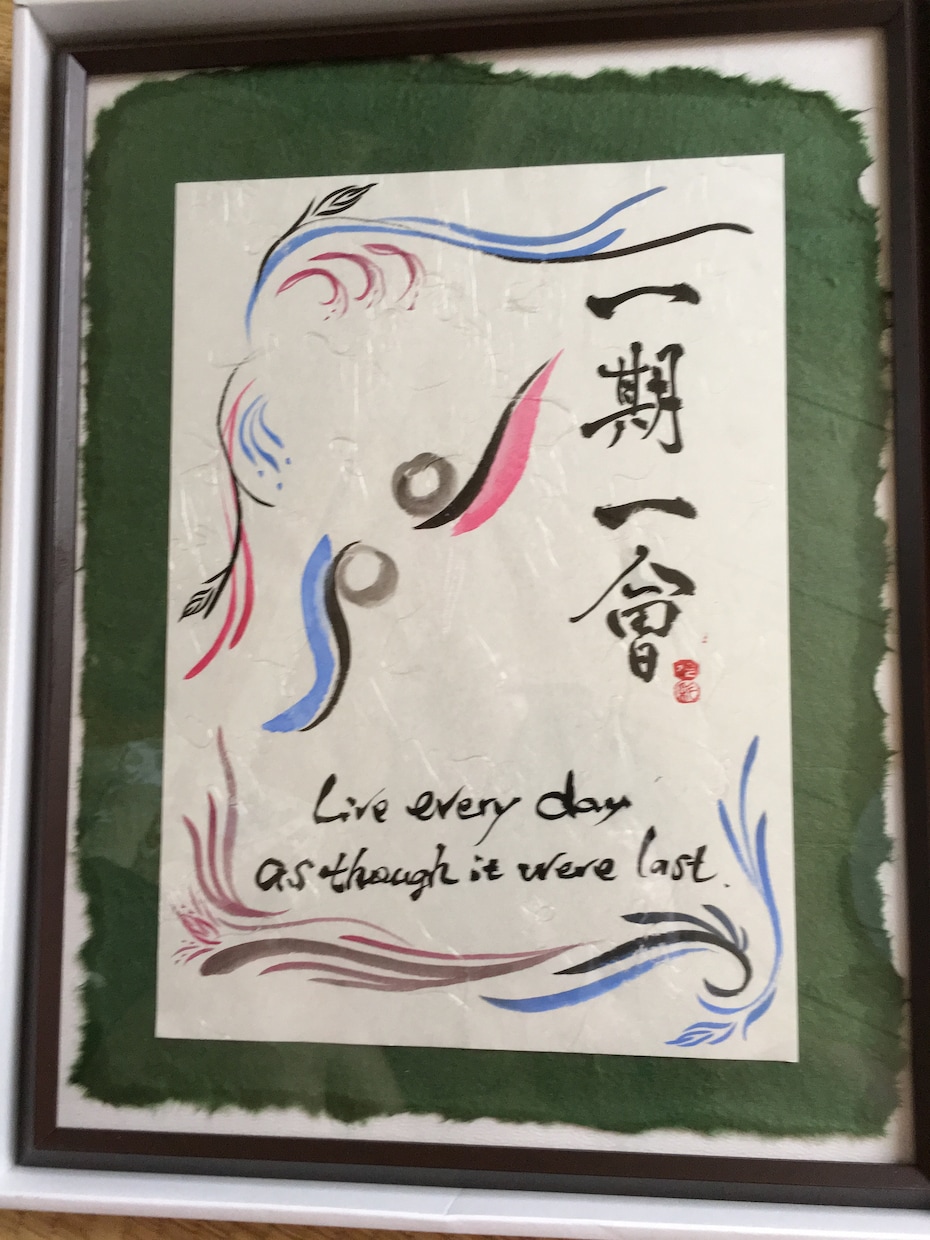 一期一會
Live every day
as though it were last.